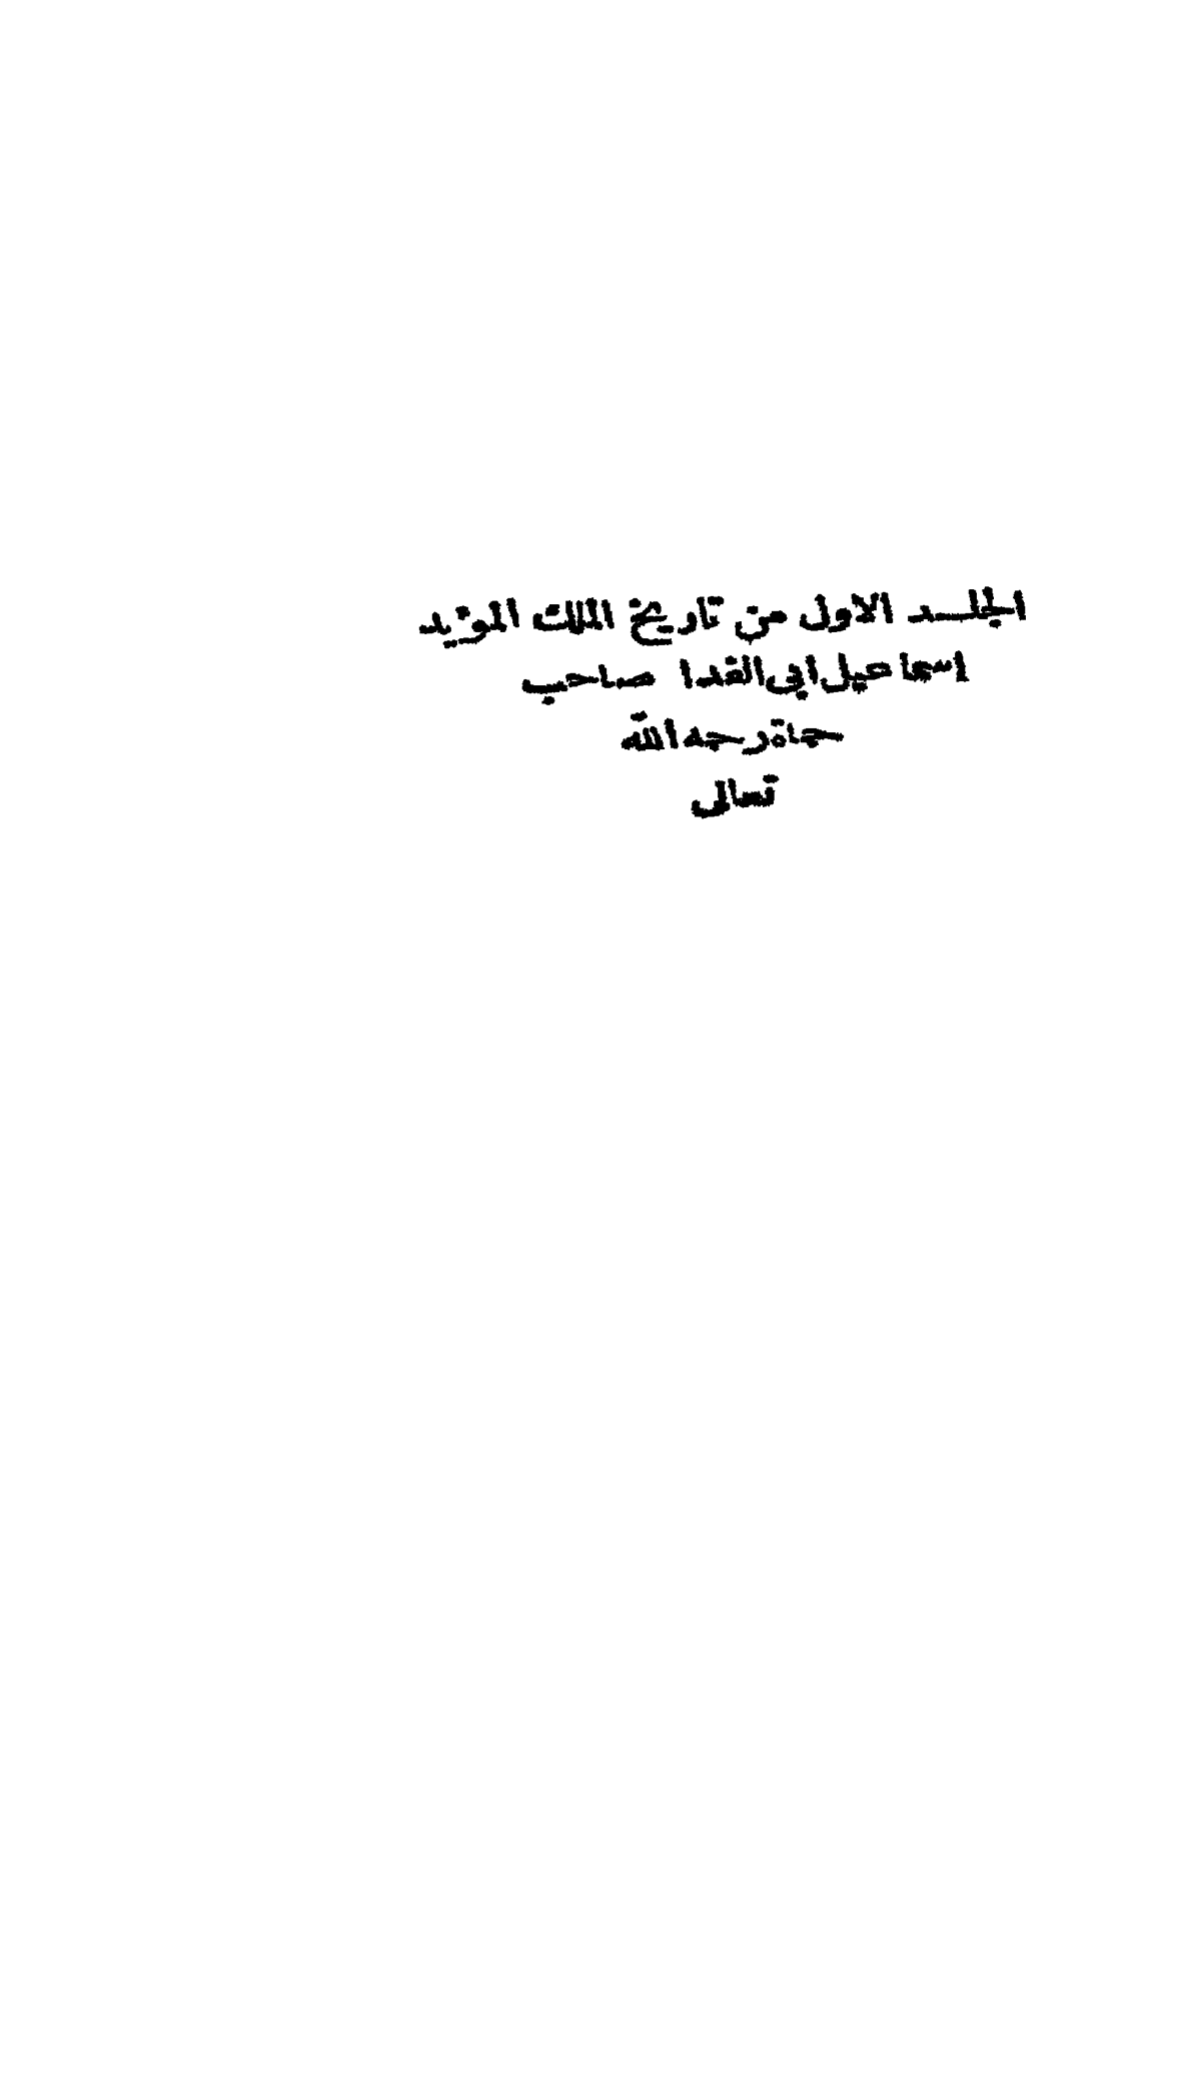 الجلد الاول من تاريخ الملك المؤيد
إسماعيل ابى الفدا صاحب
حماة رحمه الله
تعالى